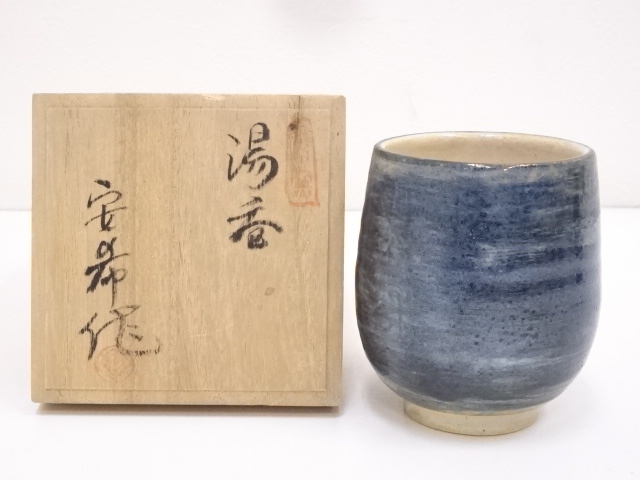 湯呑
安希作